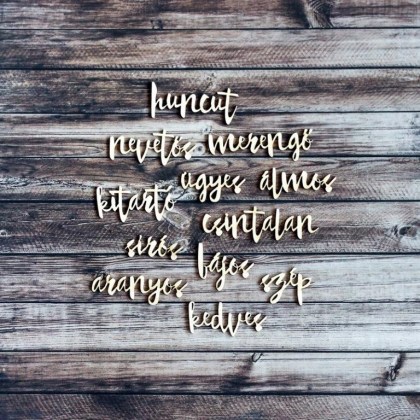 huncut
nevetős merengő
ügyes álmos
kitartó
csintalan
sírós
bájos
aranyos
szép
kedves